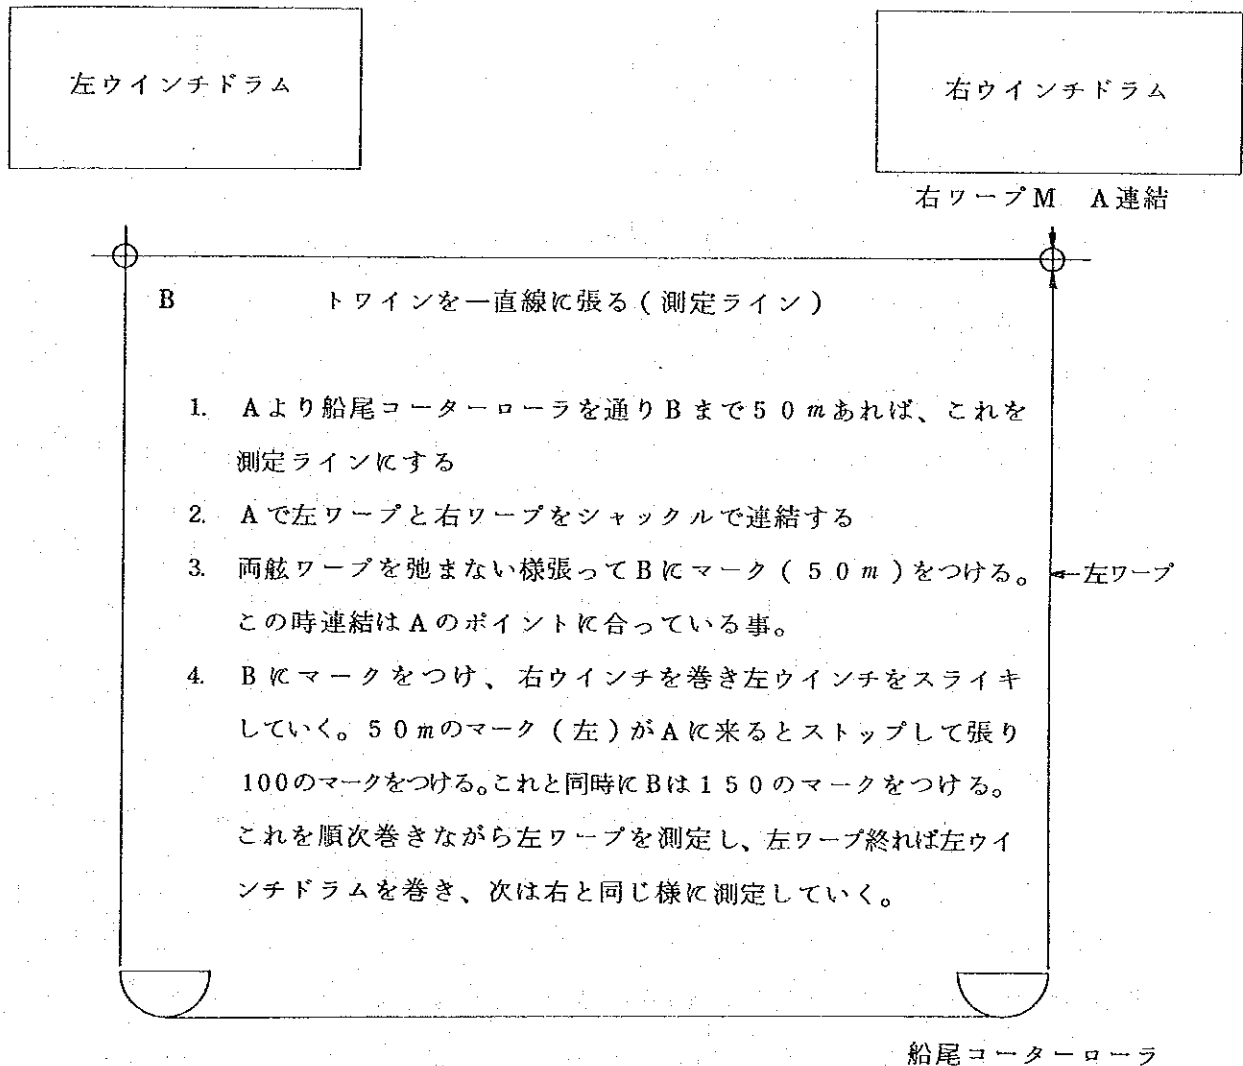 左ウインチドラム
右ウインチドラム
右ワープM A連結
B トワインを一直線に張る(測定ライン)
1. Aより船尾コーターローラを通りBまで50mあれば、これを
測定ラインにする
2. Aで左ワープと右ワープをシャックルで連結する
3. 両舷ワープを弛まない様張ってBにマーク(50m)をつける。
←左ワープ
この時連結はAのポイントに合っている事。
4. Bにマークをつけ、右ウインチを巻き左ウインチをスライキ
していく。50mのマーク(左)がAに来るとストップして張り
100のマークをつける。これと同時にBは150のマークをつける。
これを順次巻きながら左ワープを測定し、左ワープ終れば左ウイ
ンチドラムを巻き、次は右と同じ様に測定していく。
船尾コーターローラ